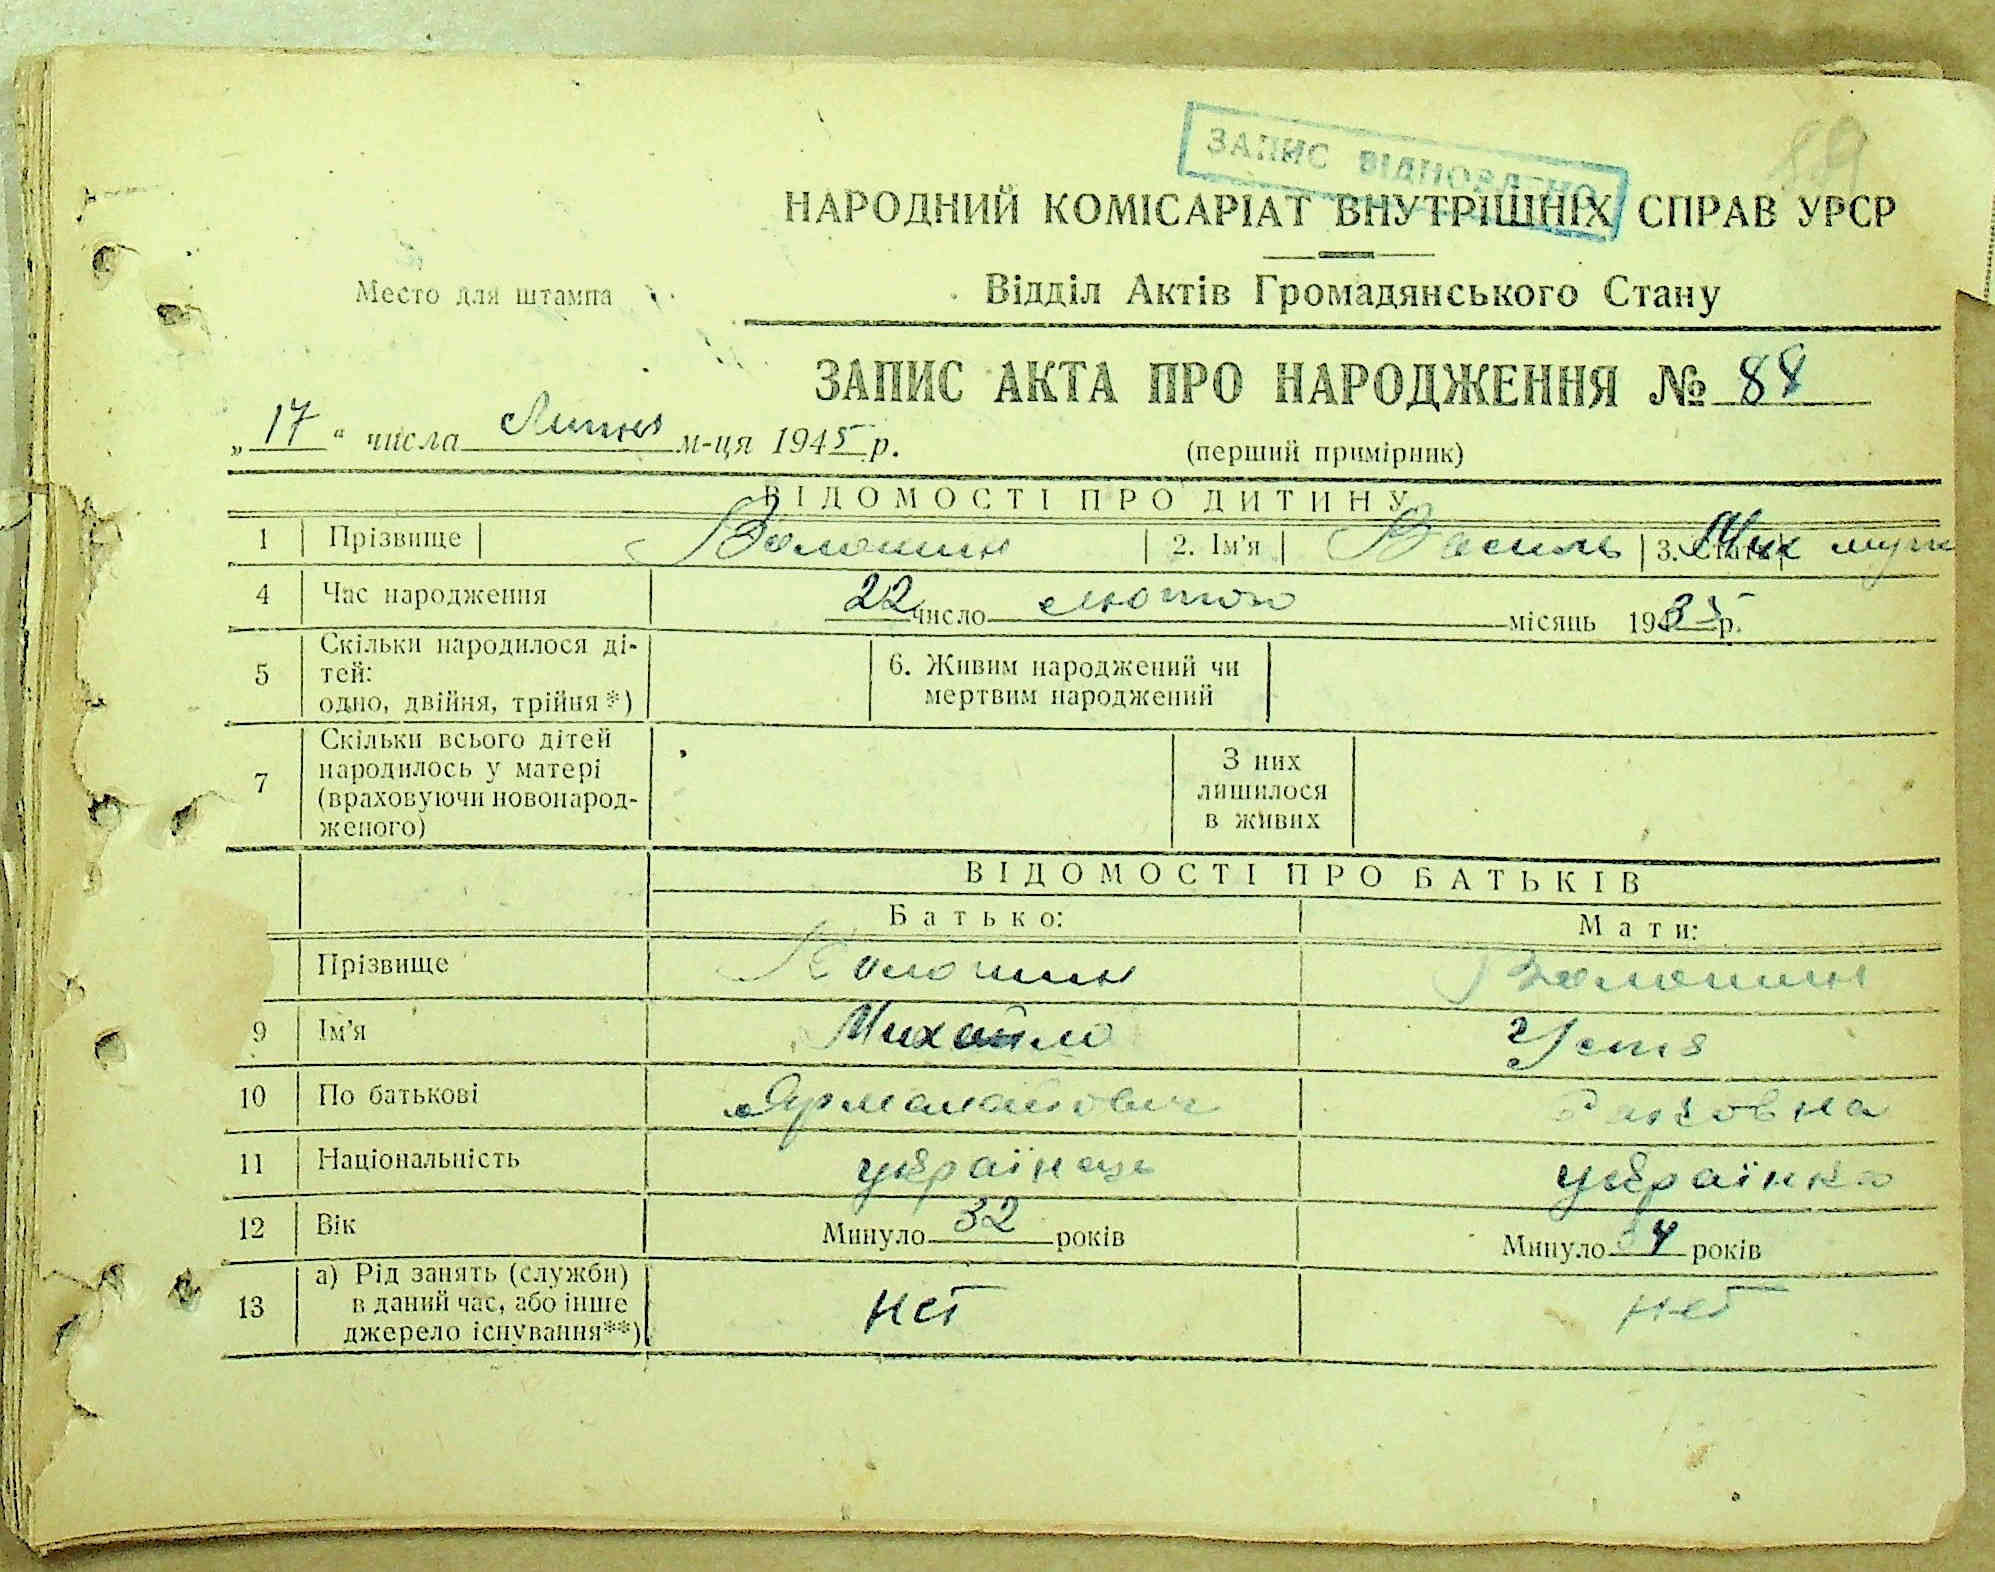 ЗАПИС ВІДНОВЛЕНО
89
НАРОДНИЙ КОМІСАРІАТ ВНУТРІШНІХ СПРАВ УРСР
Место для штампа
Відділ Актів Громадянського Стану
ЗАПИС АКТА ПРО НАРОДЖЕННЯ № 88
„17“ числа Липня м-ця 1945 р.
(перший примірник)
ВІДОМОСТІ ПРО ДИТИНУ
1 Прізвище Волошин 2. Ім'я Василь 3. Стать Мих муж
4 Час народження 22 число лютого місяць 1935 р.
5 Скільки народилося ді-
тей:
одно, двійня, трійня*)
6. Живим народжений чи
мертвим народжений
7 Скільки всього дітей
народилось у матері
(враховуючи новонарод-
женого)
З них
лишилося
в живих
ВІДОМОСТІ ПРО БАТЬКІВ
Батько: Мати:
Прізвище Волошин Волошин
9 Ім'я Михайло Устя
10 По батькові
11 Національність українець українка
12 Вік Минуло 32 років Минуло 34 років
13 а) Рід занять (служби)
в даний час, або інше
джерело існування**)
нет нет